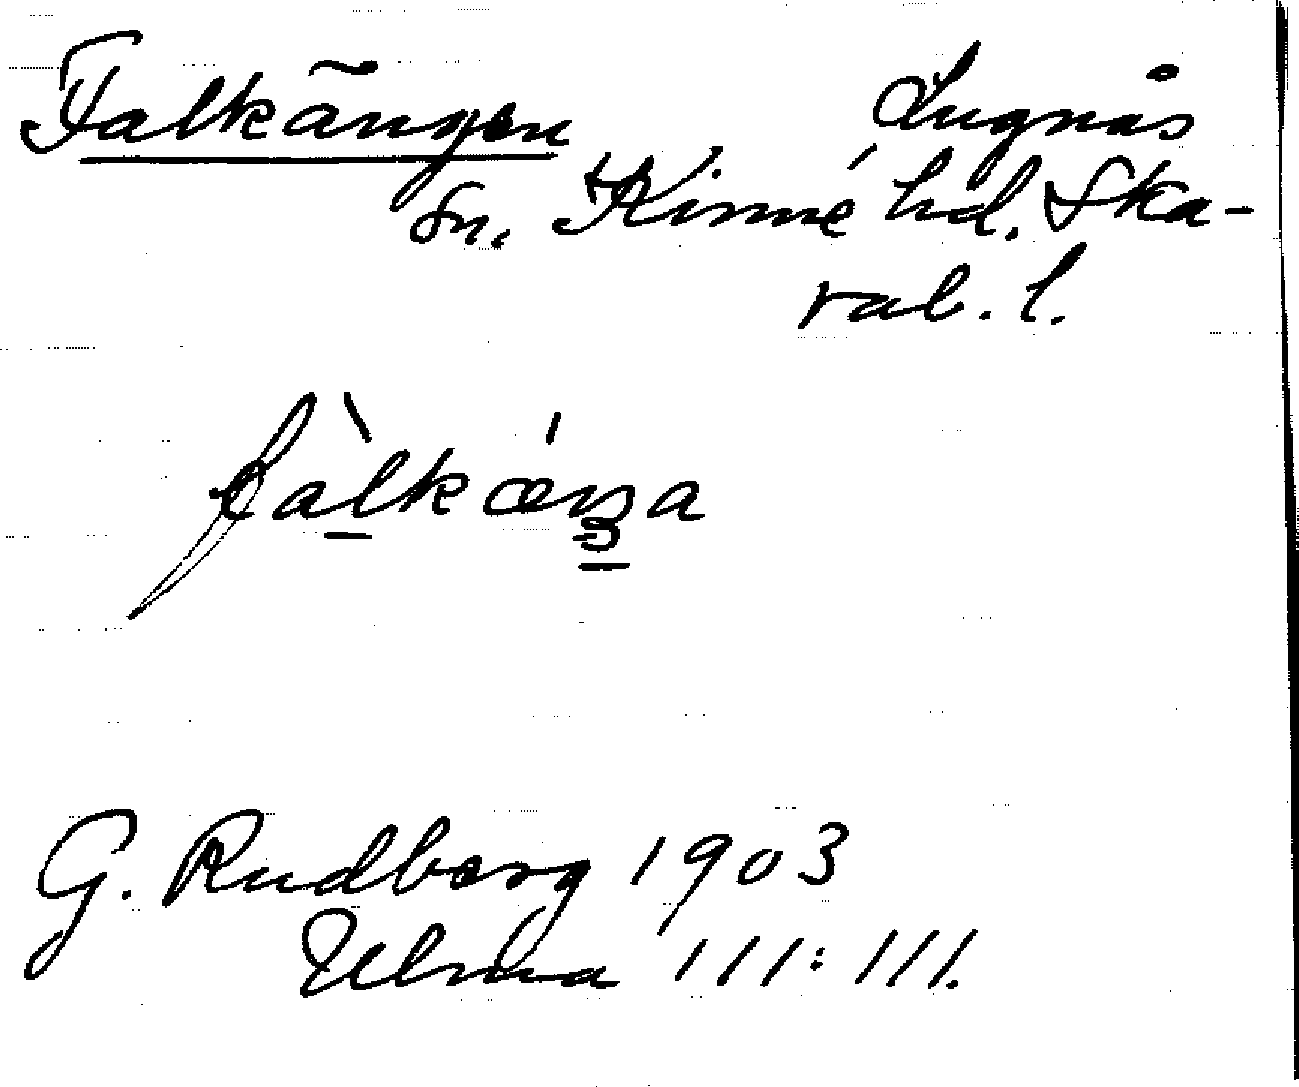 Falkängen Lugnås
sn. Kinne hd. Ska-
rab. l.
fàlkǽŋa
G. Rudberg 1903
Ulma 111:111.